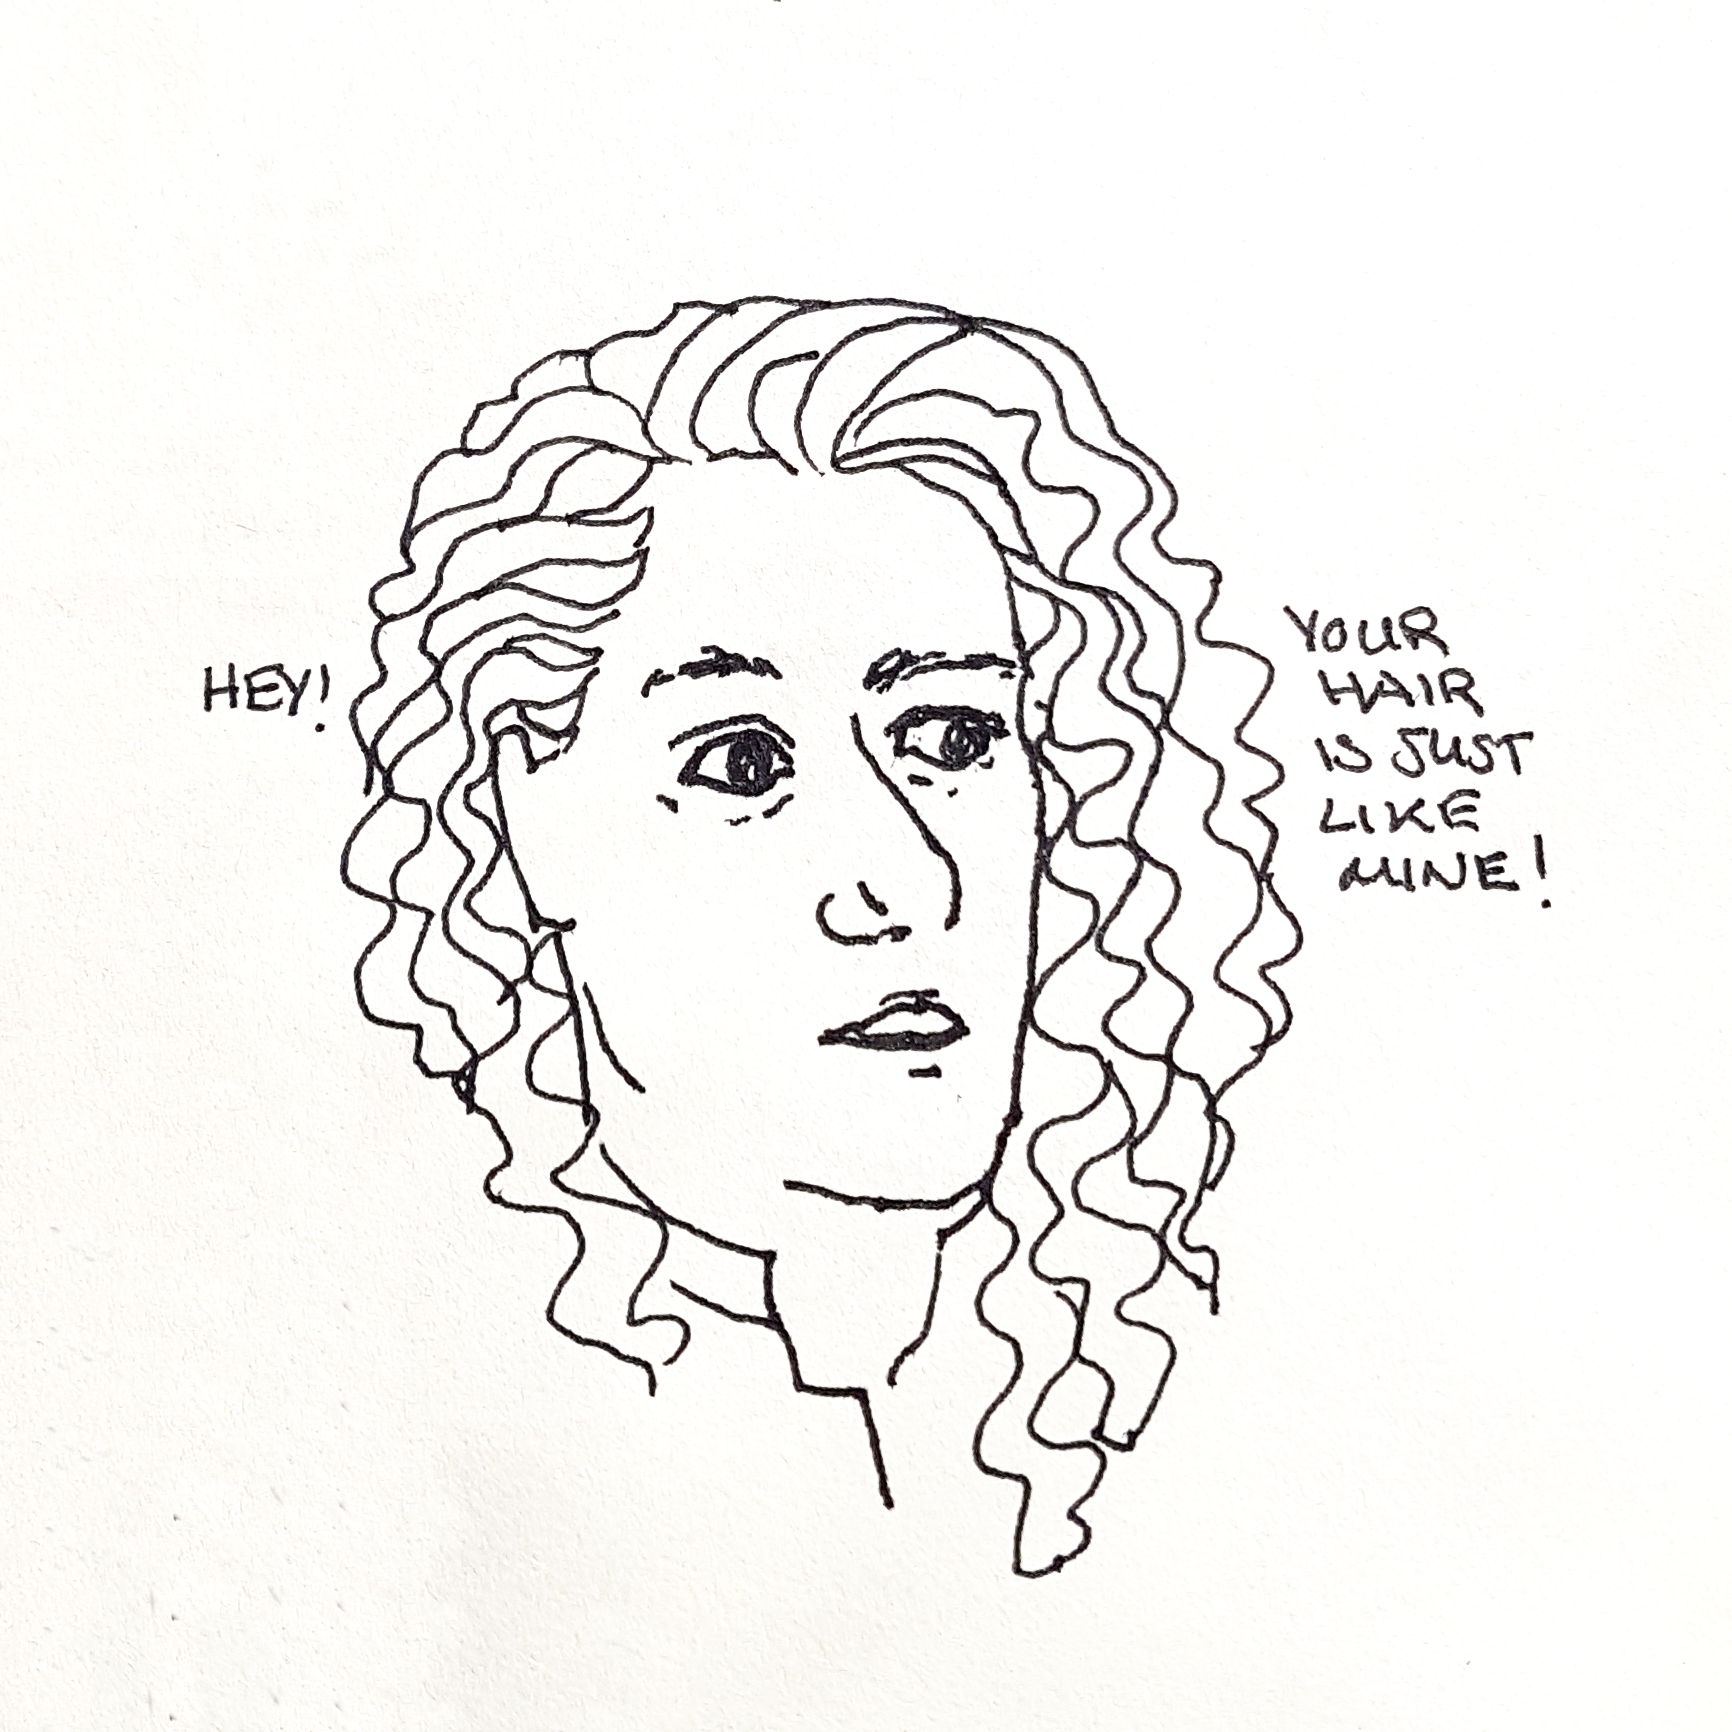 HEY!
YOUR
HAIR
IS JUST
LIKE
MINE!